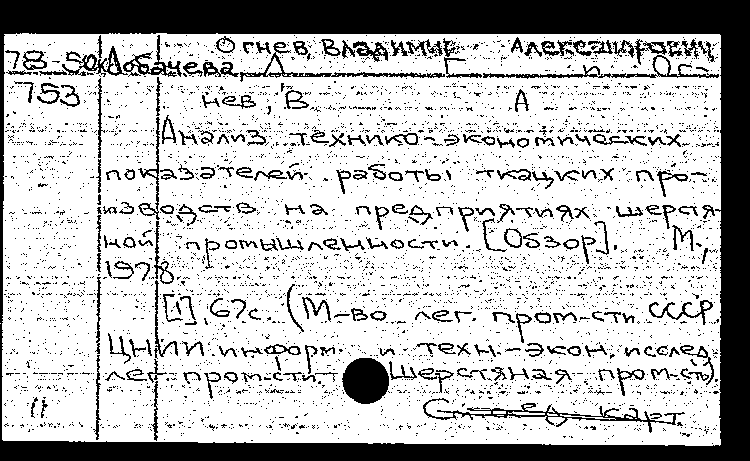 Огнев, Владимир Александрович
78-50к Лобачева, Л Г и Ог-
753 нев, В А
Анализ технико-экономических
показателей работы ткацких про-
изводств на предприятиях шерстя-
ной промышленности. [Обзор]. М.,
1978.
[1], 67с. (М-во лег. пром-сти СССР.
ЦНИИ информ. и техн.-экон. исслед.
лег. пром-сти. Шерстяная пром-сть).
11 карт